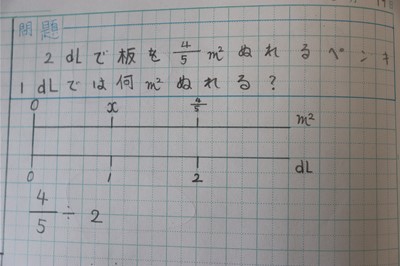 問題
2 dLで板を 4/5 m² ぬれるペンキ
1 dLでは何m²ぬれる?
0 x 4/5 m²
0 1 2 dL
4/5 ÷ 2